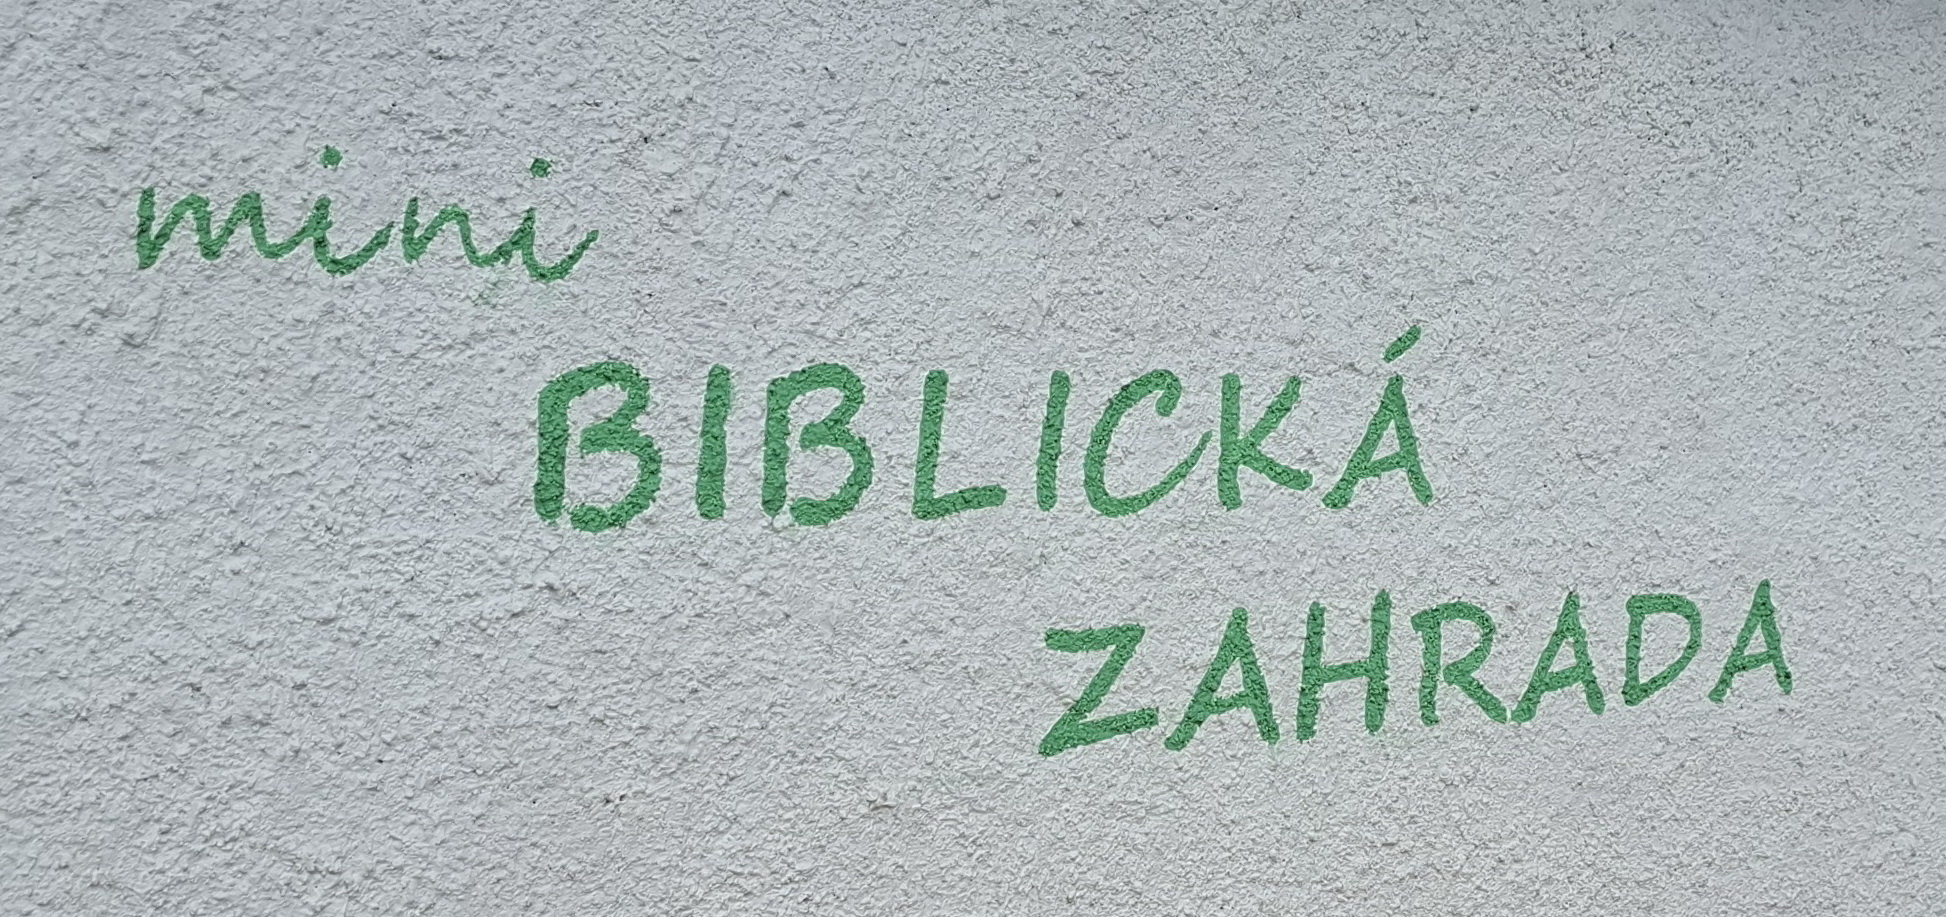 mini
BIBLICKÁ
ZAHRADA